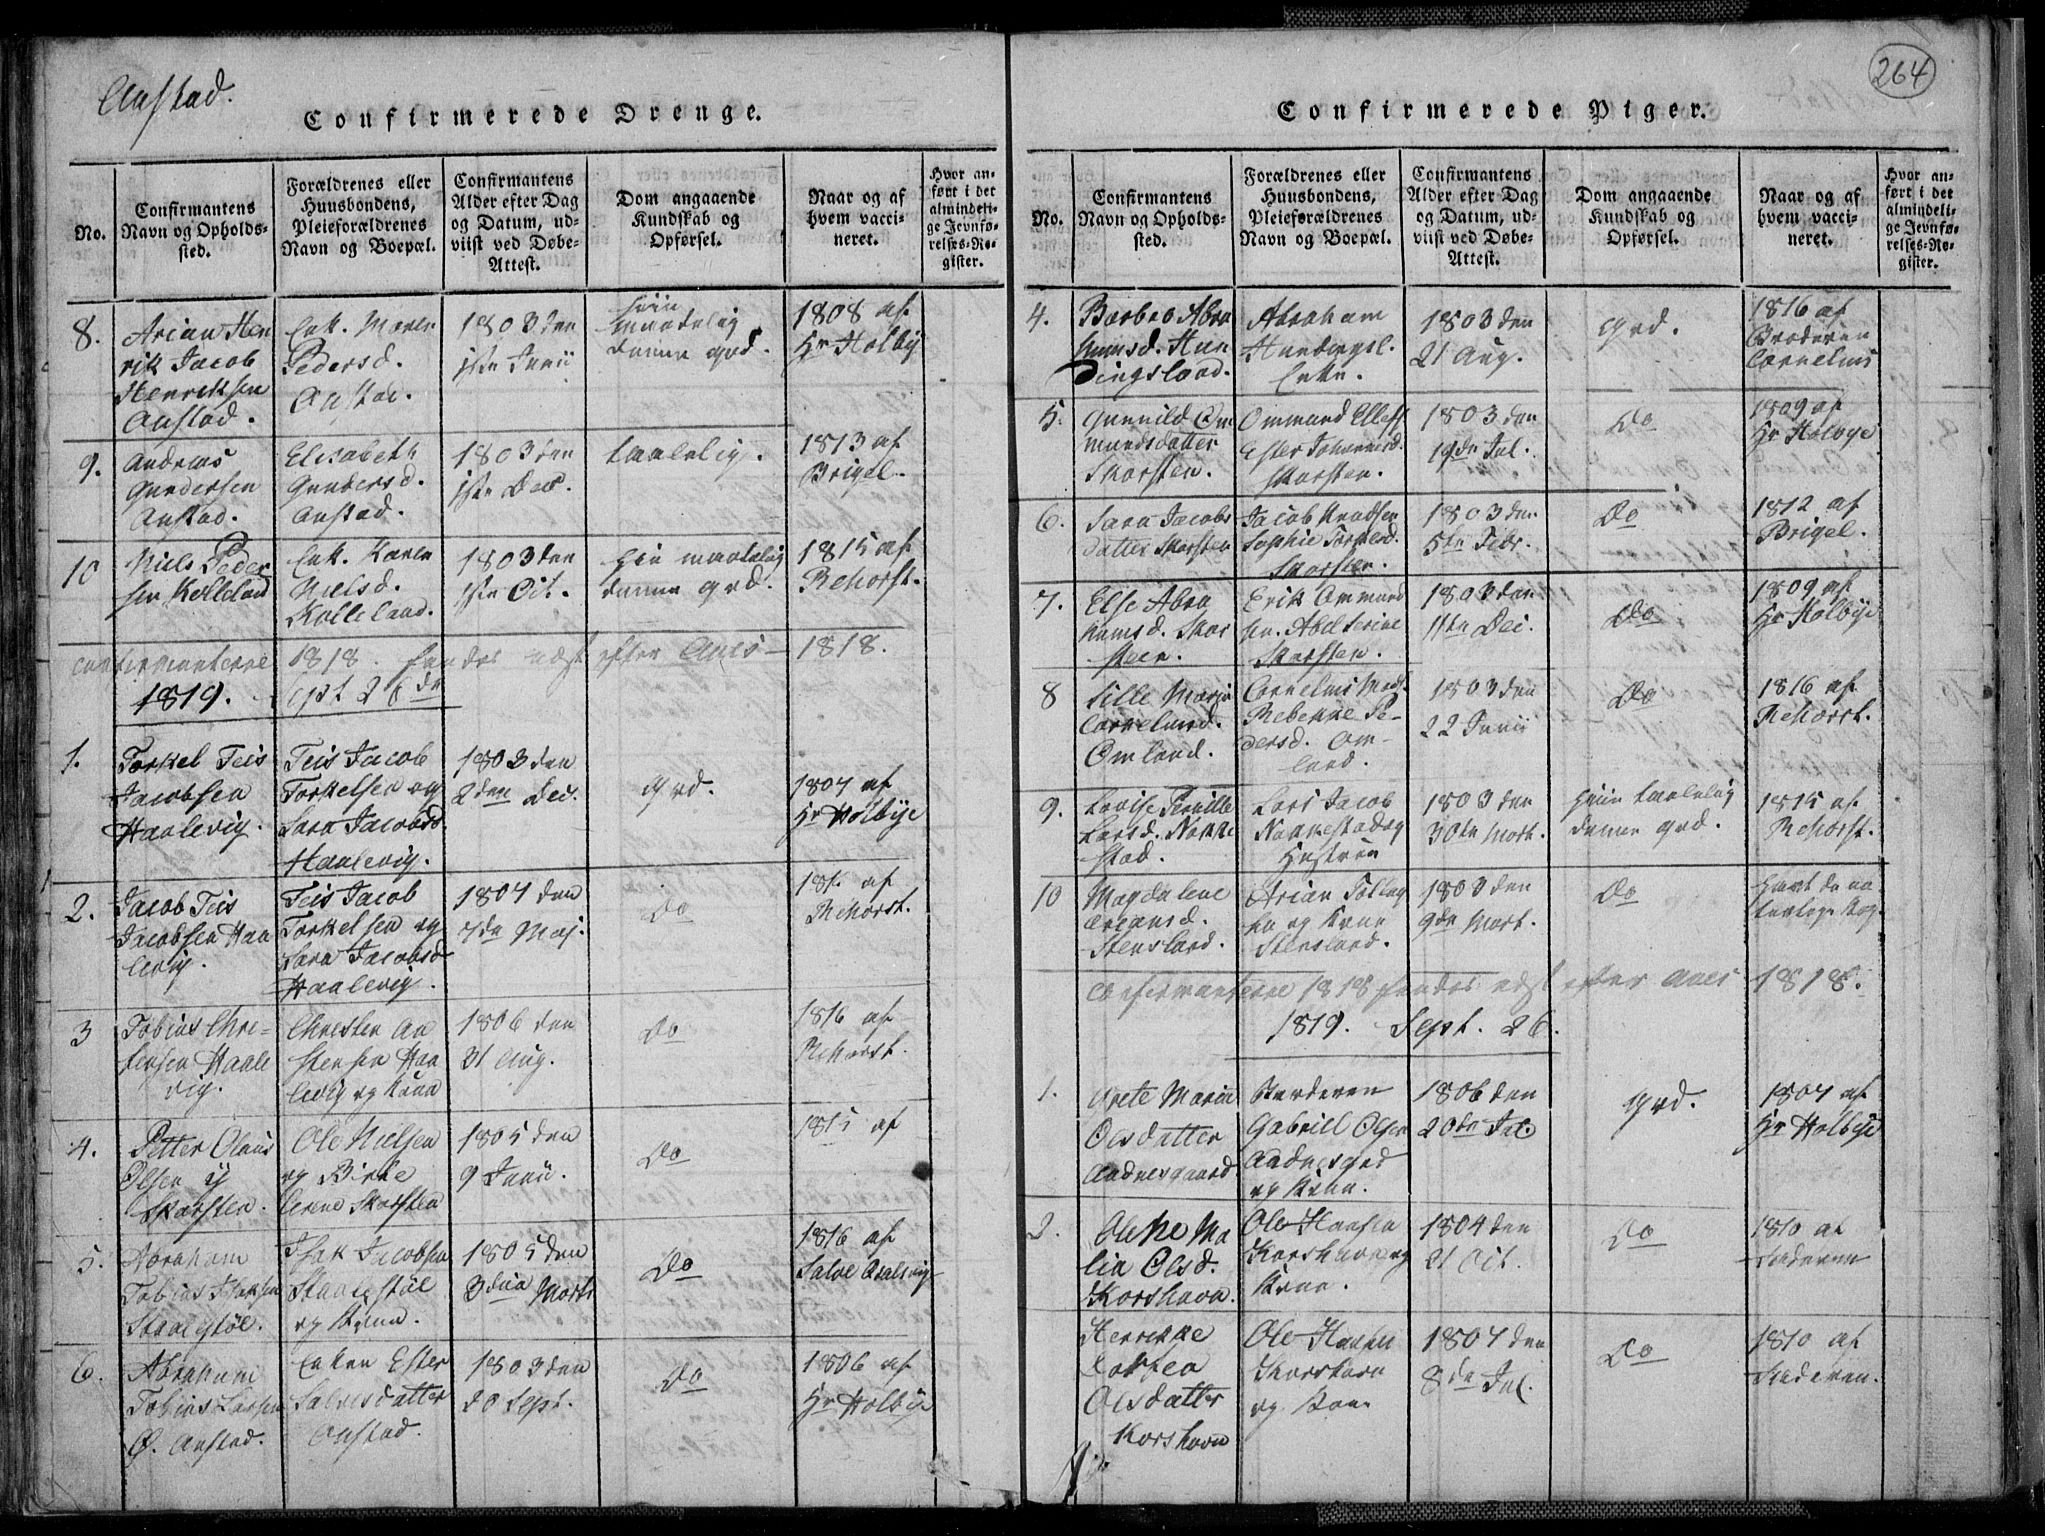 264
Austad.
Confirmerede Drenge.
No.
Confirmantens
Navn og Opholds-
sted.
Forældrenes eller
Huusbondens,
Pleieforældrenes
Navn og Boepæl.
Confirmantens
Alder efter Dag
og Datum, ud-
viist ved Døbe-
Attest.
Dom angaaende
Kundskab og
Opførsel.
Naar og af
hvem vacci-
neret.
Hvor an-
ført i det
almindeli-
ge Jevnfø-
relses-Re-
gister.
8.
Arian Hen
rik Jacob
Henriksen
Austad.
Enk. Maren
Pedersd.
Austad.
1803 den
1ste Junii
maadelig
denne god.
1808 af
Hr Holby
9.
Andreas
Gundersen
Austad.
Elisabeth
Gundersd.
Austad.
1803 den
1ste Dec.
taalelig.
1813 af
Brigel.
10
Niels Peder
sen Kolleland
Enk. Karen
Nielsd.
Kolleland.
1803 den
1ste Oct.
hin maadelig
denne god.
1815 af
Rehorst.
Confirmanterne 1818 findes næst efter Aaes 1818.
1819. Sept 26 de
1.
Torkel Teis
Jacobsen
Haalevig.
Teis Jacob
Torkelsen og
Sara Jacobsd.
Haalevig.
1803 den
2den Dec.
god.
1807 af
Hr Holbye
2.
Jacob Teis
Jacobsen Haa
levig.
Teis Jacob
Torkelsen og
Sara Jacobsd
Haalevig.
1807 den
7de Maj.
Do
af
Rehorst.
3
Tobias Chri-
stensen Haale
vig.
Christen Au
stensen Haa
levig og Kone
1806 den
31 Aug.
Do
1816 af
Rehorst.
4.
Petter Olaus
Olsen
Skarsten.
Ole Nielsen
og Birte
Skarsten
1805 den
9 Junii.
Do
1815 af
5.
Abraham
Tobias Isaksen
Isak Jacobsen
og Kone.
1805 den
3die Marts
Do
1816 af
Salve
6.
Abraham
Tobias Larsen
Ø. Austad.
Enken Ester
Salvesdatter
Austad.
1803 den
20 Sept.
Do
1806 af
Hr Holbye
Confirmerede Piger.
No.
Confirmantens
Navn og Opholds-
sted.
Forældrenes eller
Huusbondens,
Pleieforældrenes
Navn og Boepæl.
Confirmantens
Alder efter Dag
og Datum, ud-
viist ved Døbe-
Attest.
Dom angaaende
Kundskab og
Opførsel.
Naar og af
hvem vacci-
neret.
Hvor an-
ført i det
almindeli-
ge Jevnfø-
relses-Re-
gister.
4.
Barbro Abra
hamsd. Hun
dingsland.
Abraham
Hundingsl.
Enke.
1803 den
21 Aug.
god.
1816 af
Broderen
Cornelius
5.
Gunnild Om
mundsdatter
Skarsten.
Ommund Ellefs.
Ester
Skarsten.
1803 den
19de Jul.
Do
1809 af
Hr Holbye
6.
Sara Jacobs
datter Skarsten
Jacob Knudsen
Sophie
Skarsten.
1803 den
5te Febr.
Do
1812 af
Brigel.
7.
Else Abra
hamsd. Skar
steen.
Erik Ommund
sen. Abel Serine
Skarsten.
1803 den
11te Dec.
Do
1809 af
Hr Holbye
8
Sille Maria
Corneliusd.
Omland.
Cornelius Mads.
Rebekke Pe-
dersd. Om-
land.
1803 den
22 Junii
Do
1816 af
Rehorst.
9.
Lovise Pernille
Larsd. Nokke
stad.
Lars Jacob
Nokkestad og
Hustrue
1803 den
30te Mart.
hiin taalelig
denne god.
1815 af
Rehorst.
10
Magdalene
Ariansd.
Stensland.
Arian Tolleg
og Kone
Stensland.
1803 den
9de Mart.
Do
havt de na
turlige Kop.
Confirmanterne 1818 findes næst efter Aaes 1818.
1819. Sept. 26.
1.
Grete Marie
Olsdatter
Andnesgaard
Gabriel Olsen
og Kone.
1806 den
20de Jul.
god.
1807 af
Hr Holbye
2.
Olene Ma
lia Olsd.
Korshavn.
Ole Hansen
Korshavn og
Kone.
1804 den
21 Oct.
Do
1810 af
Faderen
Henrikke
Olsdatter
Korshavn
Ole Hansen
Korshavn
og Kone
1807 den
8de Jul.
Do
1810 af
Faderen.